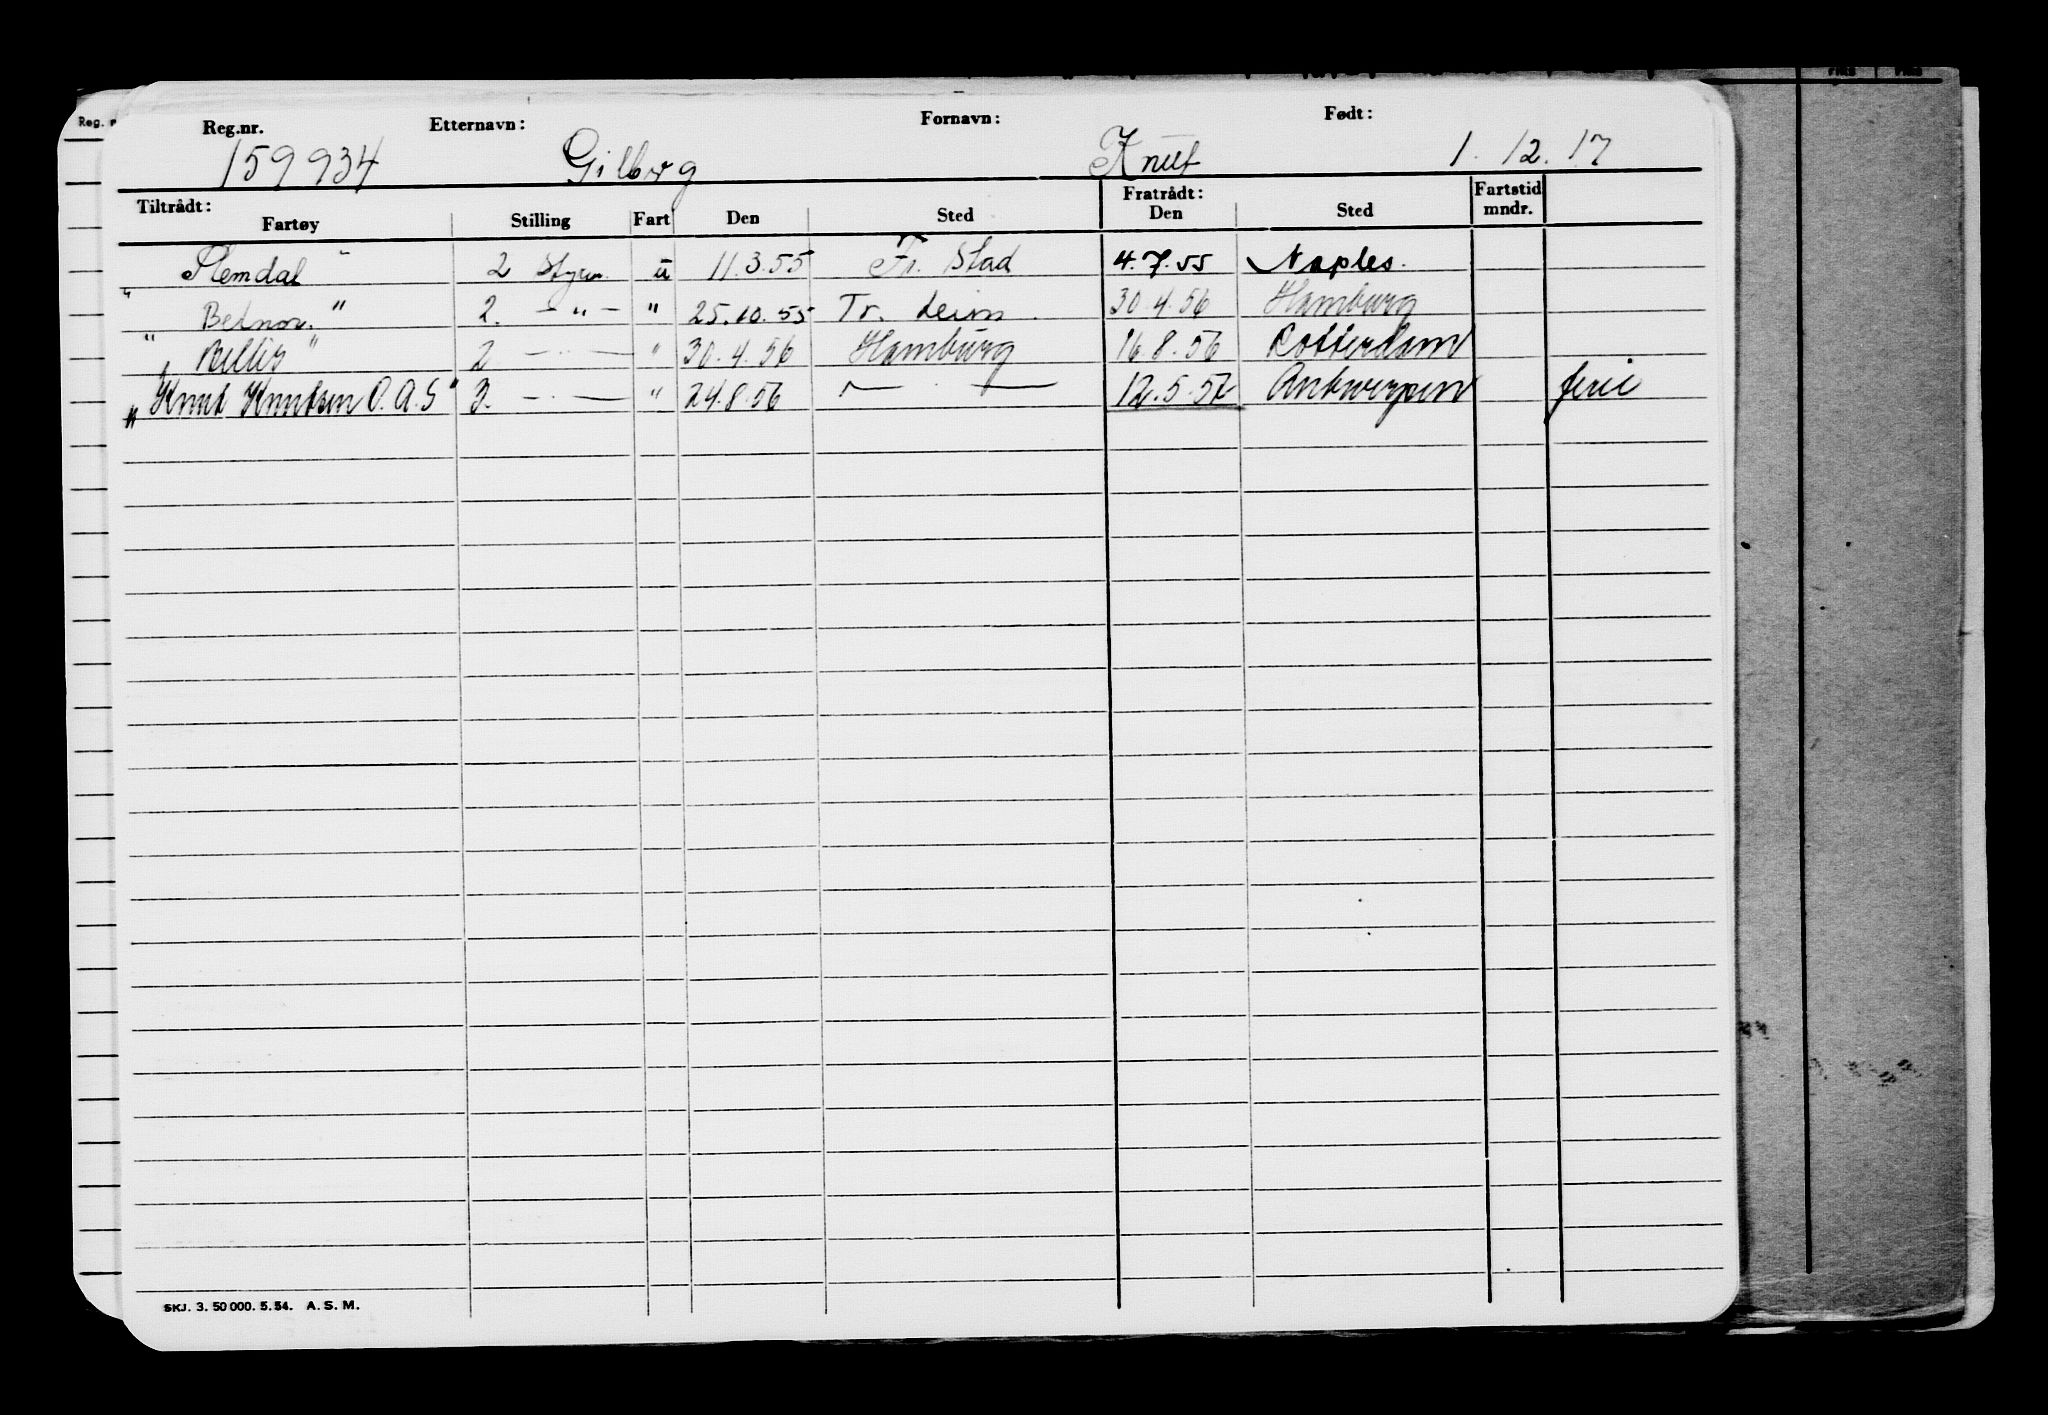 Reg.nr. Etternavn: Fornavn: Født:
159934 Gilberg Knut 1. 12. 17
Tiltrådt: Fratrådt: Fartstid
Fartøy Stilling Fart Den Sted Den Sted mndr.
2 Styrm. u 11.3.55 Fr. Stad 4.7.55 Naples.
" Betnor. " 2. - " - " 25.10.55 Tr. heim 30.4.56 Hamburg
" Bellis " 2 - " - " 30.4.56 Hamburg 16.8.56 Rotterdam
" Knut Knutsen O.A.S " 3. - " - " 24.8.56 - " - 12.5.57 Antwerpen ferie
SKJ. 3. 50 000. 5. 54. A. S. M.
Reg. n